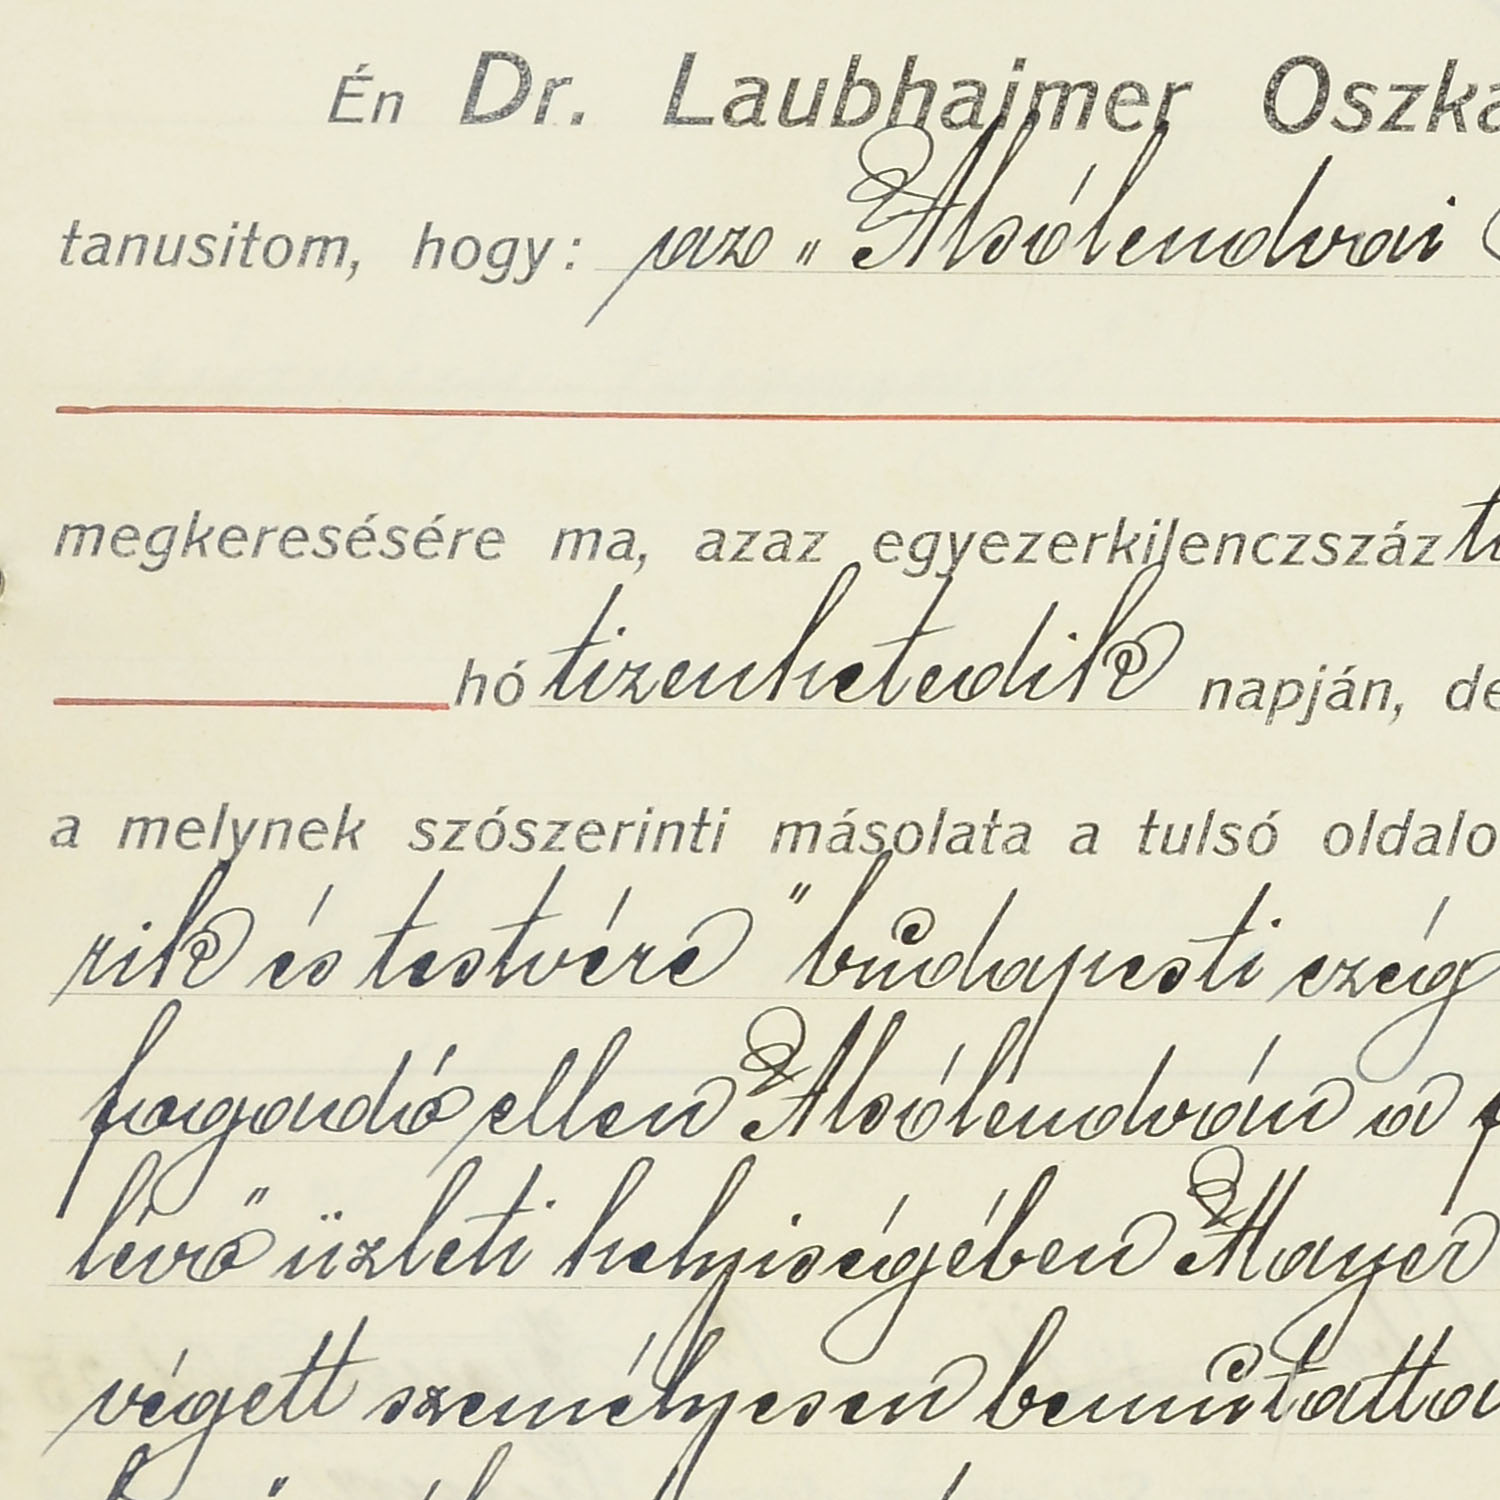 Én Dr. Laubhaimer Oszká
tanusitom, hogy: az „Alsólendvai
megkeresésére ma, azaz egyezerkilenczszáz
hó tizenhetedik napján, de
a melynek szószerinti másolata a tulsó oldalo
rik és testvére" budapesti czég
fogadó ellen Alsólendván a
lévő üzleti helyiségében Mayer
végett személyesen bemutatta